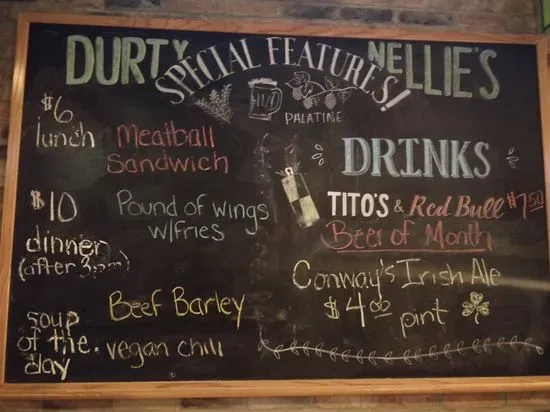 DURTY NELLIE'S
SPECIAL FEATURES!
PALATINE
$6 lunch
Meatball Sandwich
$10 dinner (after 3pm)
Pound of wings w/fries
soup of the day
Beef Barley
vegan chili
DRINKS
TITO'S & Red Bull $7.50
Beer of Month
Conway's Irish Ale
$4.00 pint